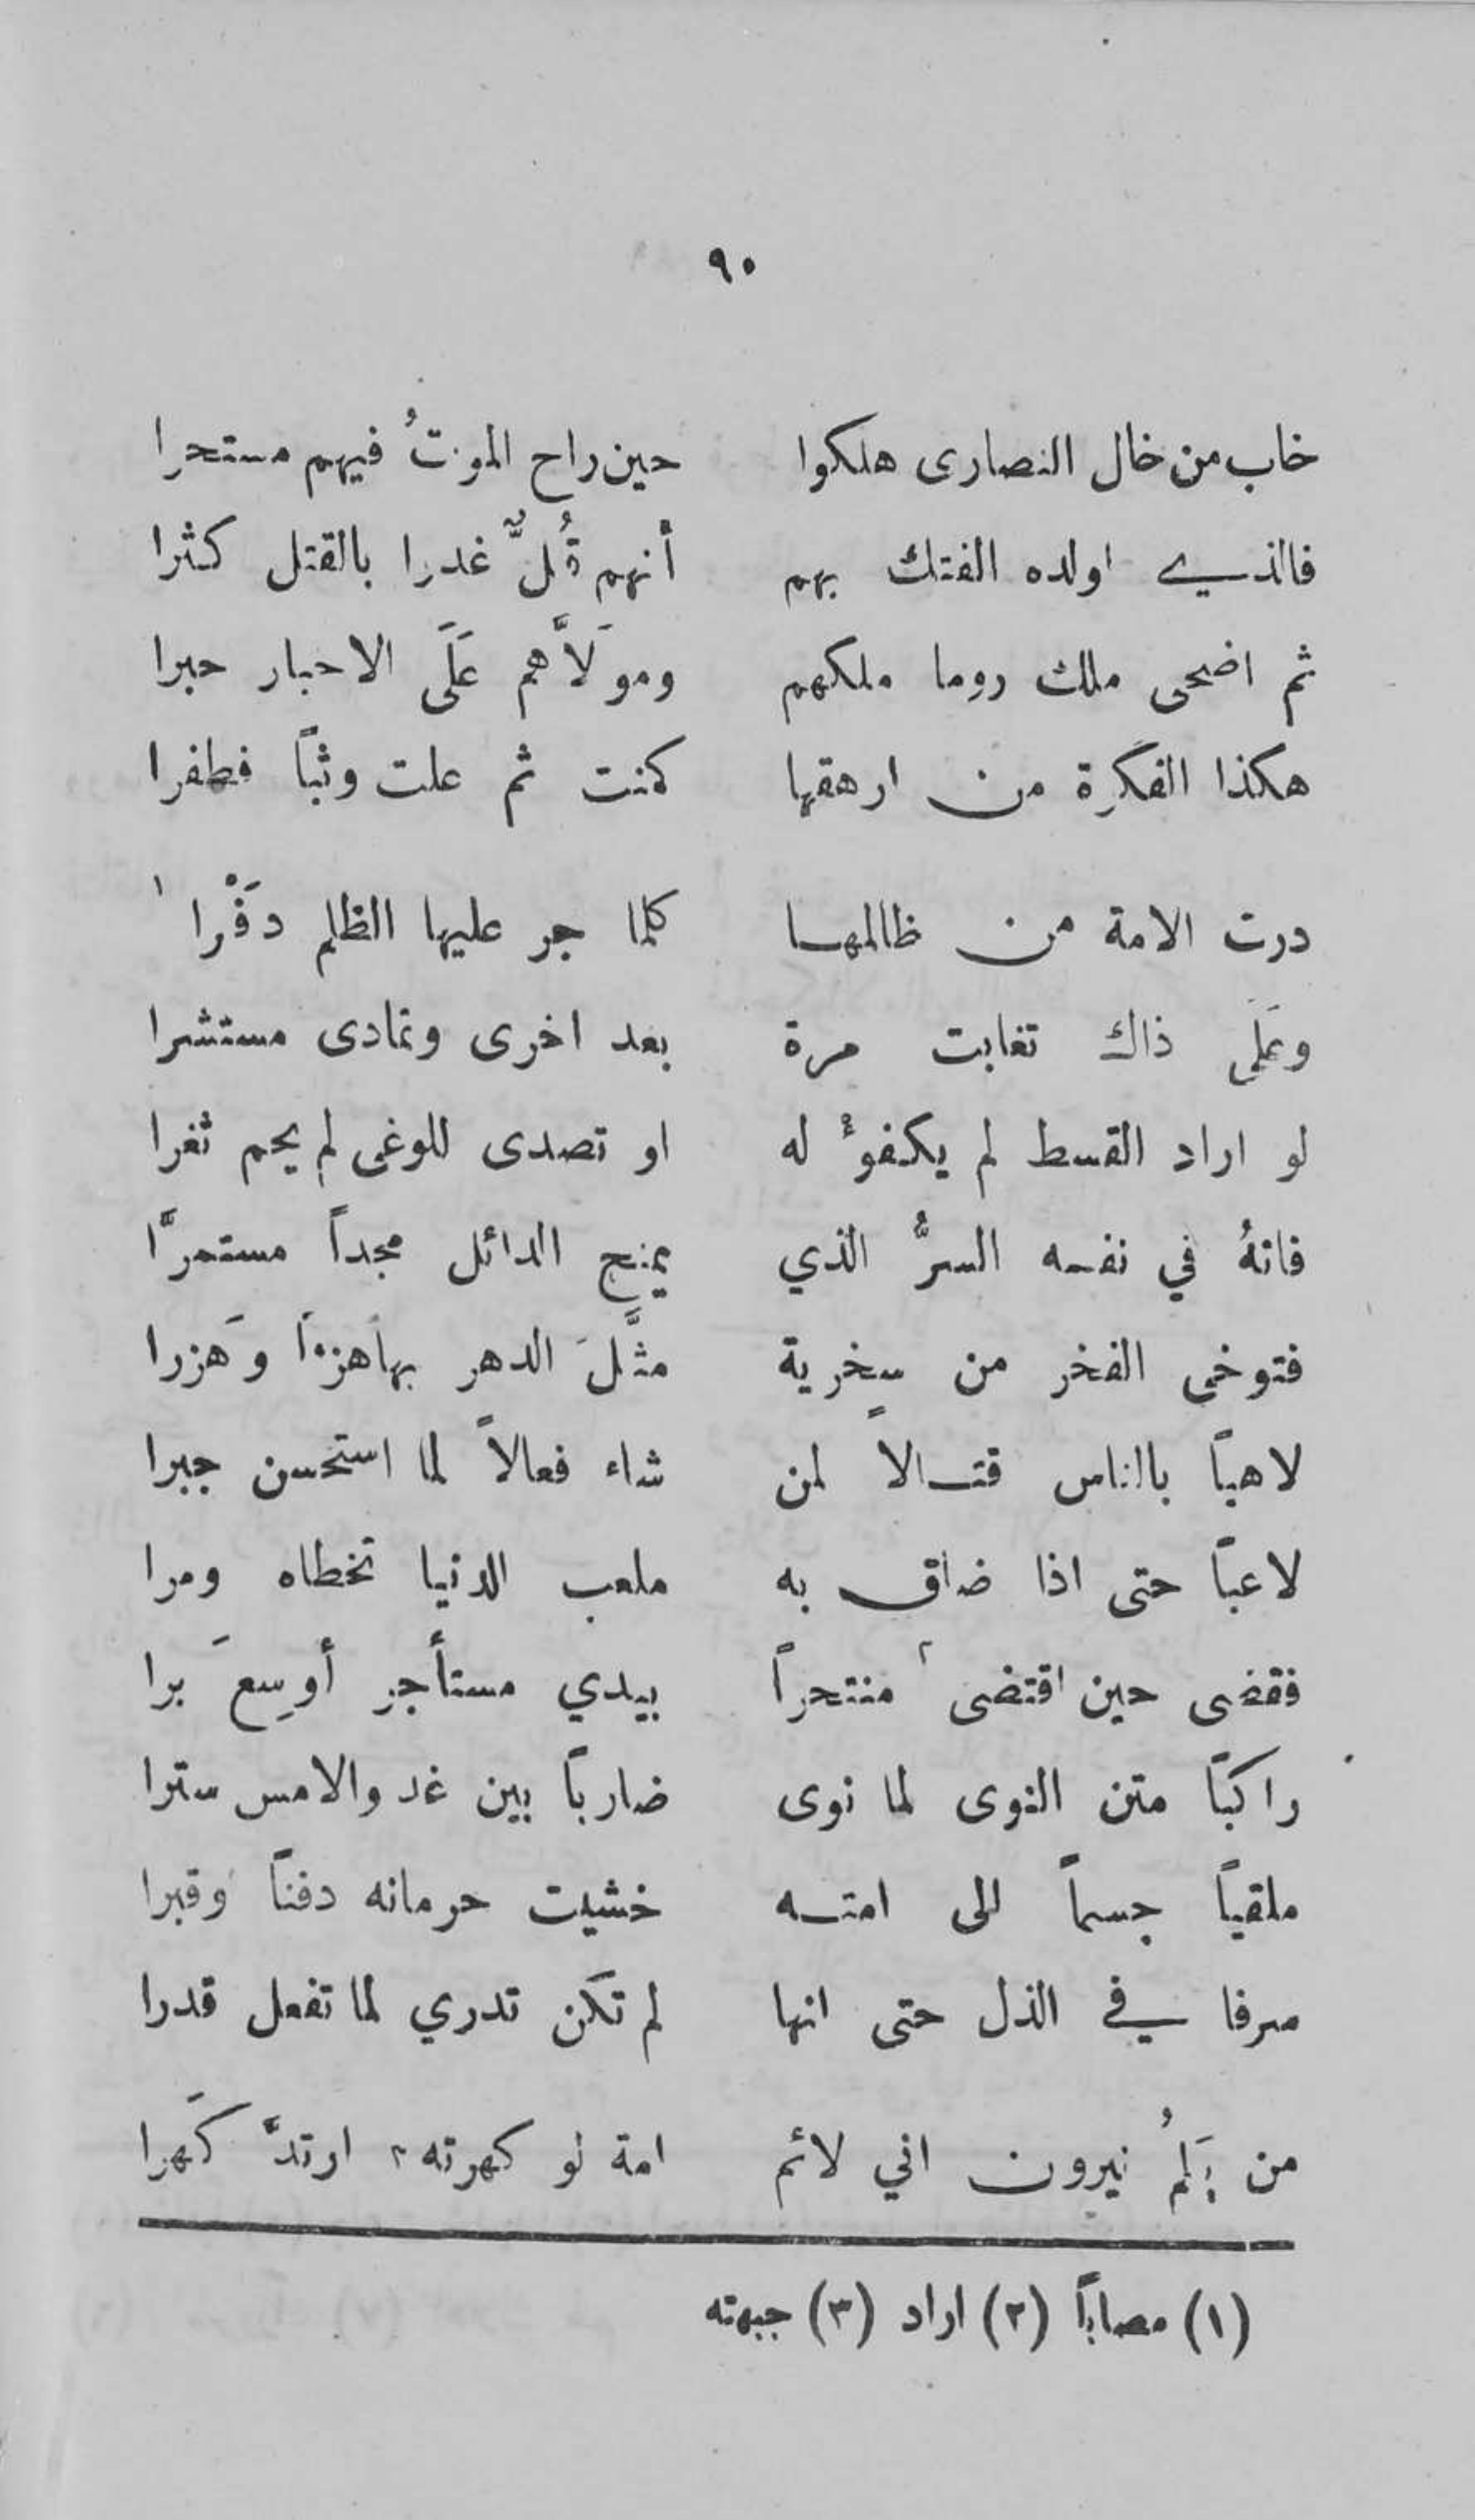 ٩٠
خاب من خال النصارى هلكوا حين راح الموتُ فيهم مستحرا
فالذي اولده الفتك بهم أنهم قُلٌّ غدرا بالقتل كثرا
ثم اضحى ملك روما ملكهم ومولَاَّهم عَلَى الاحبار حبرا
هكذا الفكرة من ارهقها كمنت ثم علت وثباً فطفرا
درت الامة من ظالمها كلما جر عليها الظلم دَفْرا ١
وعَلى ذاك تغابت مرة بعد اخرى وتمادى مستشرا
لو اراد القسط لم يكفوْ له او تصدى للوغى لم يحم ثغرا
فاتهُ في نفسه السرُّ الذي يمنح الدائل مجداً مستمرًّا
فتوخى الفخر من سخرية مثَّلَ الدهر بها هزءاً وَهزرا
لاهياً بالناس قتالاً لمن شاء فعالاً لما استحسن جبرا
لاعباً حتى اذا ضاق به ملعب الدنيا تخطاه ومرا
فقضى حين اقتضى ٢ منتحراً بيدي مستأجر أوسِعَ برا
راكباً متن النوى لما نوى ضارباً بين غد والامس سترا
ملقياً جسماً الى امته خشيت حرمانه دفناً وقبرا
مسرفا في الذل حتى انها لم تكن تدري لما تفعل قدرا
من يَلمُ نيرون اني لائم امة لو كهرته ٣ ارتدَّ كَهرا
(١) مصاباً (٢) اراد (٣) جبهته